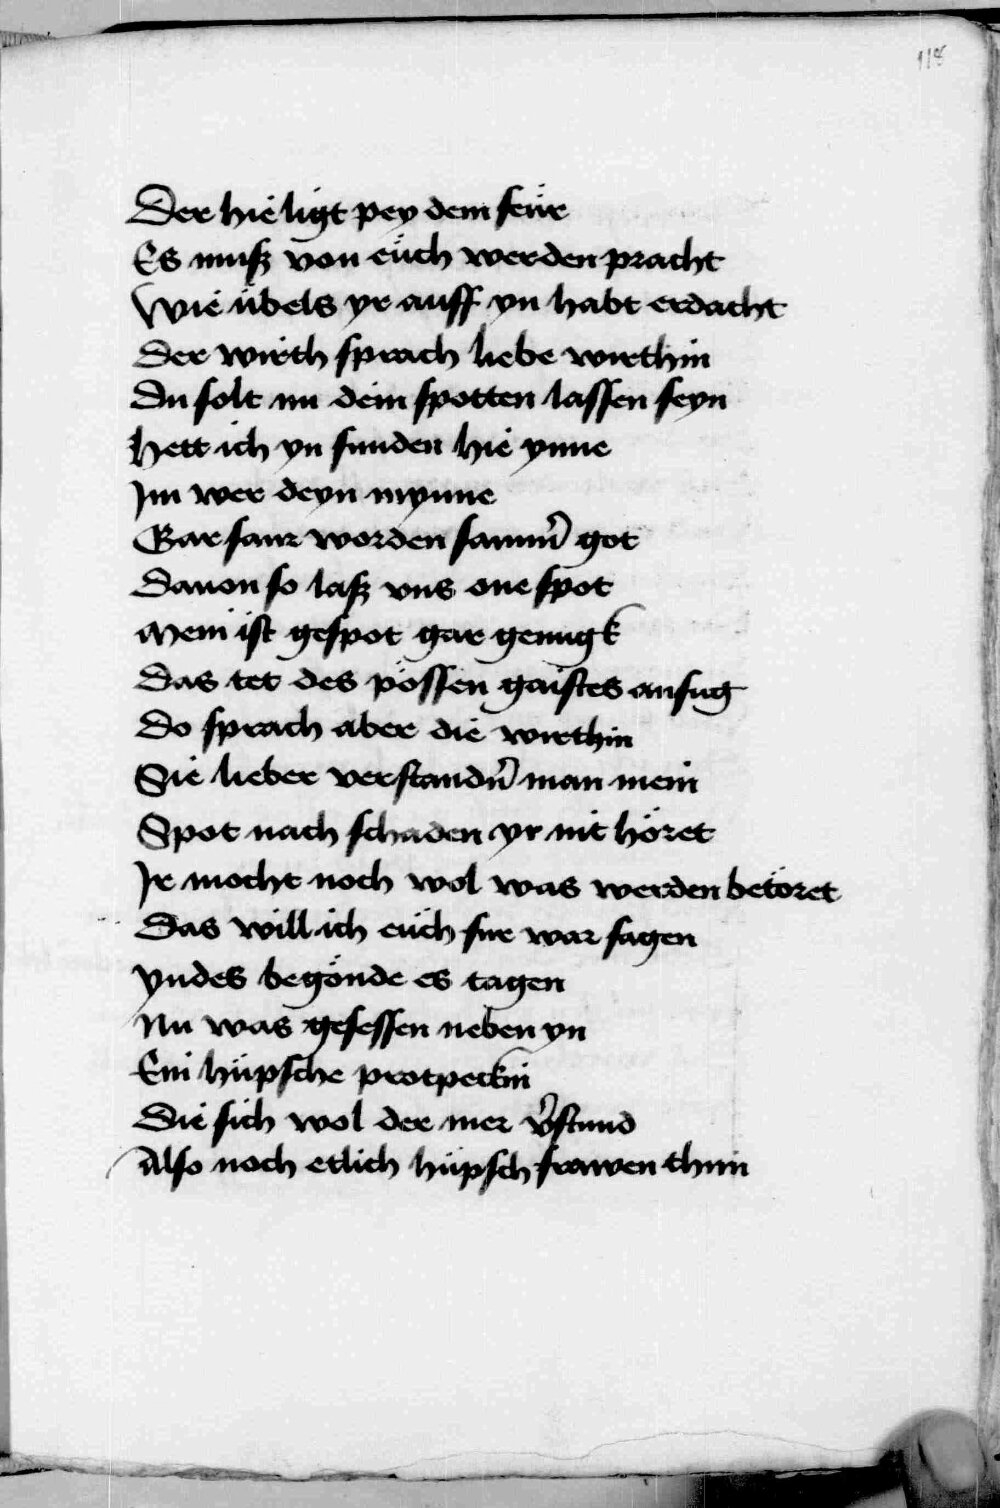 118
Der hie ligt pey dem feür
Es muß von eüch werden pracht
Wie übels yr auff yn habt erdacht
Der wirth sprach liebe wirthin
Du solt nu dein spotten lassen seyn
Hett ich yn funden hie ynne
Im wer deyn mynne
Gar saur worden samm̄ got
Dauon so laß vns one spot
Mein ist gespot gar genugk
Das tet des pössen gaistes anfug
Do sprach aber die wirthin
Sie lieber verstandn̄ man mein
Spot nach schaden yr nit höret
Ir mocht noch wol was werden betöret
Das will ich eüch fur war sagen
yndes begönde es tagen
Nu was gesessen neben yn
Ein hüpsche protpeckin
Die sich wol der mer v̄stund
Also noch etlich hüpsch frawen thun